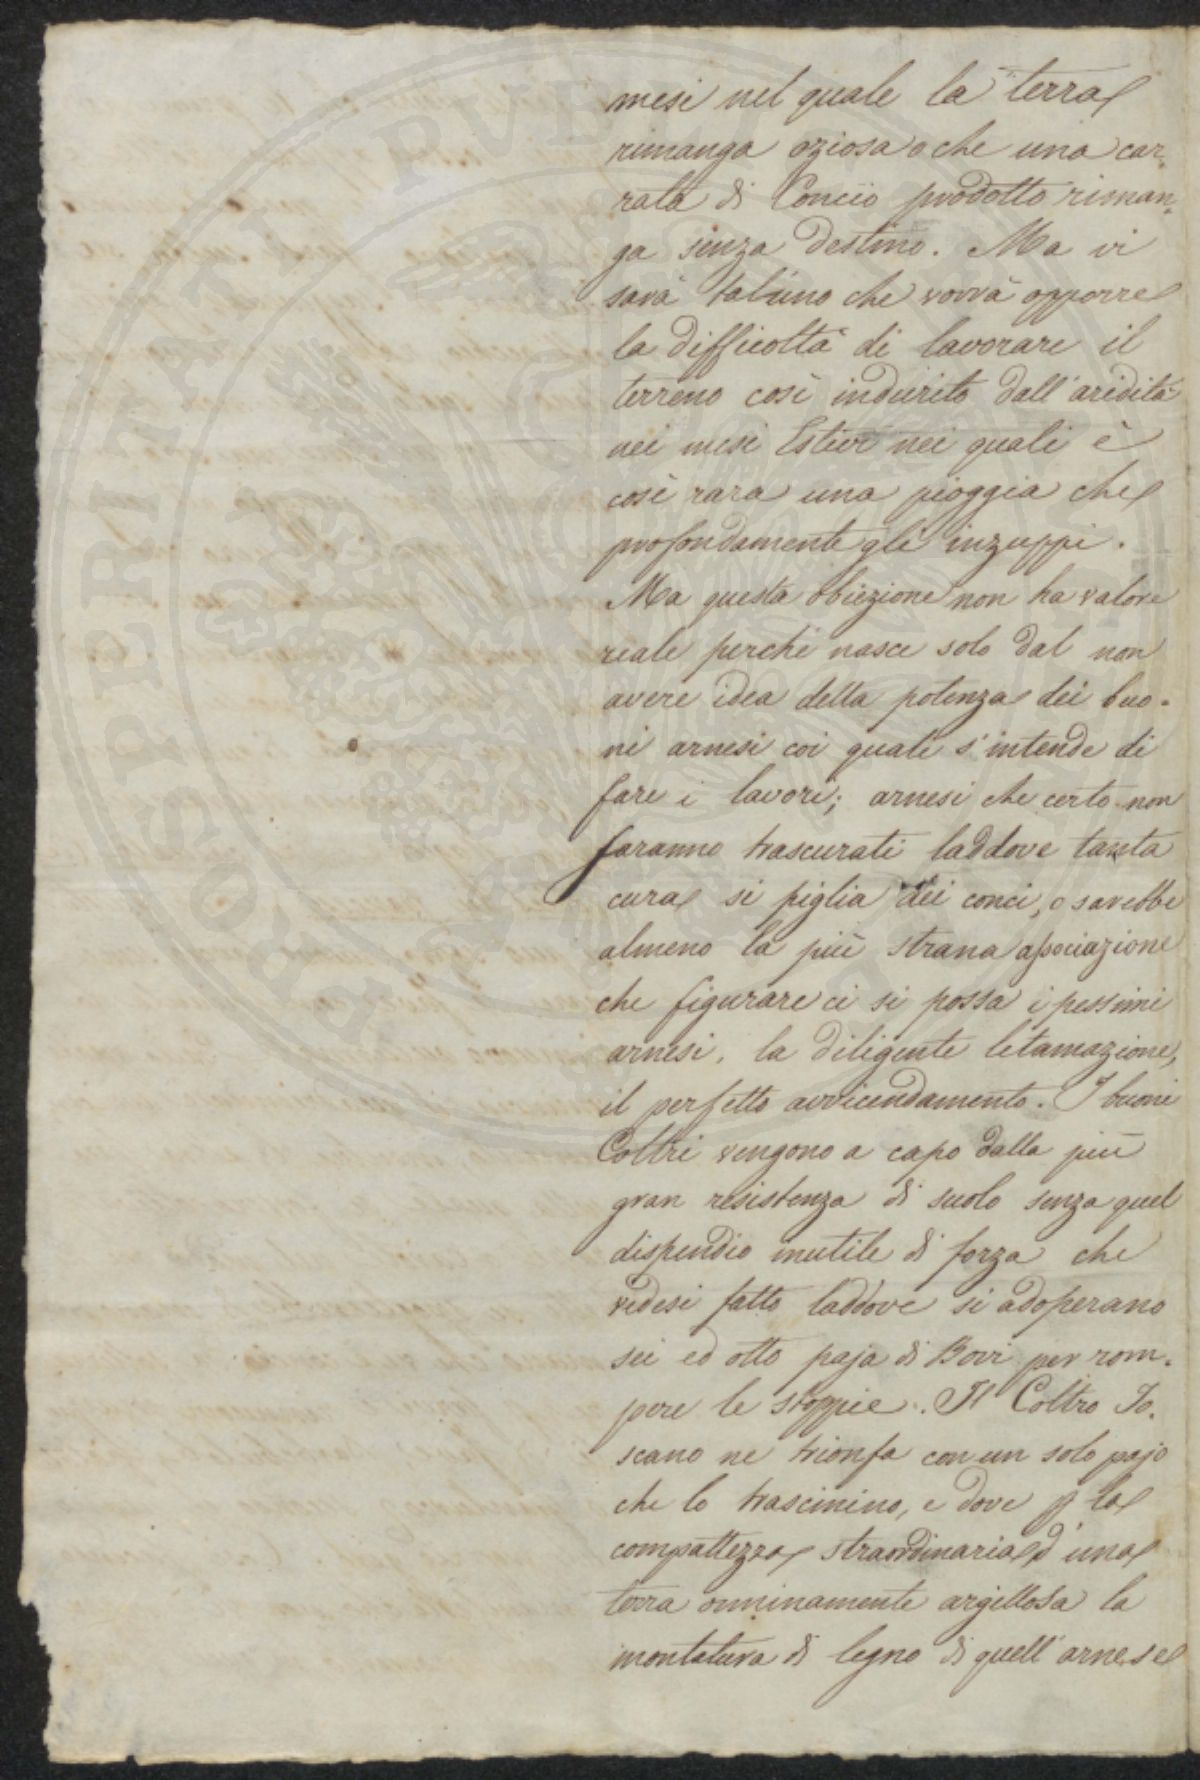 mesi nel quale la terra
rimanga oziosa o che una car-
rata di Concio prodotto riman-
ga senza destino. Ma vi
sarà taluno che vorrà opporre
la difficoltà di lavorare il
terreno così indurito dall'aridità
nei mesi Estivi nei quali è
così rara una pioggia che
profondamente gli inzuppi.
Ma questa obiezione non ha valore
reale perché nasce solo dal non
avere idea della potenza dei buo-
ni arnesi coi quali s'intende di
fare i lavori; arnesi che certo non
saranno trascurati laddove tanta
cura si piglia dei conci, o sarebbe
almeno la più strana associazione
che figurare ci si possa i pessimi
arnesi, la diligente letamazione,
il perfetto avvicendamento. I buoni
Coltri vengono a capo dalla più
gran resistenza di suolo senza quel
dispendio inutile di forza che
vedesi fatto laddove si adoperano
sei ed otto paja di Bovi per rom-
pere le stoppie. Il Coltro To-
scano ne trionfa con un solo pajo
che lo trascinino, e dove p la
compattezza straordinaria d'una
terra onninamente argillosa la
montatura di legno di quell'arnese
PROSPERITATI PVBLICAE